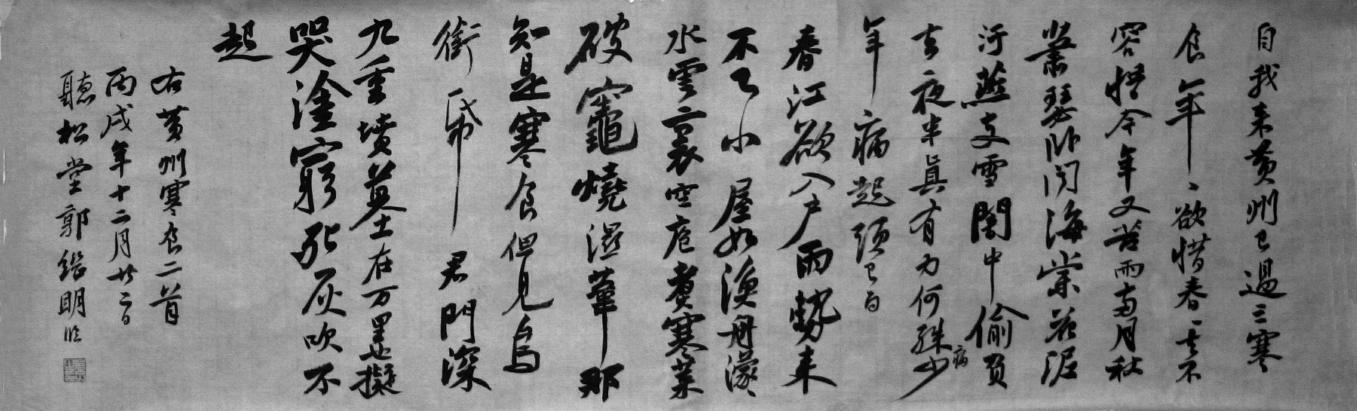 自我来黄州已過三寒
食年〻欲惜春〻去不
容惜今年又苦雨兩月秋
蕭瑟卧聞海棠花泥
汙燕支雪闇中偷負
去夜半真有力何殊少病
年病起頭已白
春江欲入户雨勢来
不已小屋如漁舟濛〻
水雲裏空庖煮寒菜
破竈燒濕葦那
知是寒食但見烏
銜帋君門深
九重墳墓在万里也擬
哭塗窮死灰吹不
起
右黄州寒食二首
丙戌年十二月廿二日
聽松堂郭繼明臨